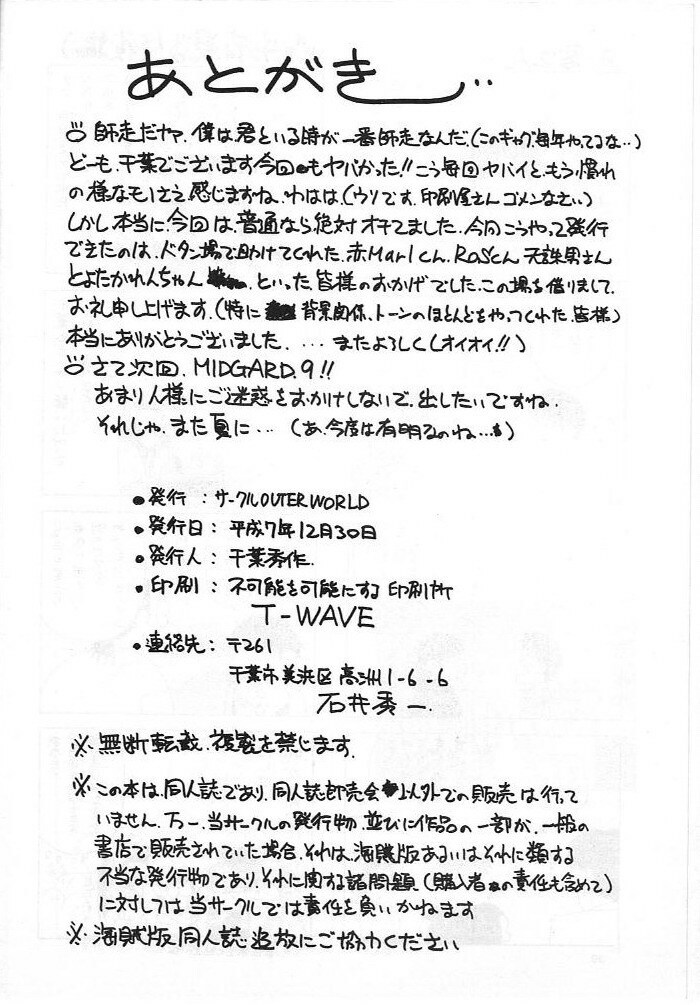 あとがき
師走だヤァ. 僕は.君といる時が一番師走なんだ.(このギャグ毎年やってるな‥)
どーも.千葉でございます今回もヤバかった!!こう毎回ヤバイと.もう慣れ
の様なモノさえ感じますね.わはは.(ウソです.印刷屋さんゴメンなさい)
しかし本当に.今回は.普通なら絶対オチてました.今回こうやって発行
できたのは.ドタン場で助けてくれた.赤Marlくん.RaSくん 天誅男さん
とよたかれんちゃん .といった皆様のおかげでした.この場を借りまして.
お礼申し上げます.(特に 背景関係.トーンのほとんどをやってくれた.皆様)
本当にありがとうございました. …またよろしく(オイオイ!!)
さて次回. MIDGARD.9!!
あまり人様にご迷惑をおかけしないで.出したいですね.
それじゃ.また夏に… (あ.今度は有明るのね…)
●発行 : サークルOUTER WORLD
●発行日: 平成7年12月30日
●発行人: 千葉秀作.
●印刷 : 不可能を可能にする 印刷所
T-WAVE
●連絡先: 〒261
千葉市美浜区 高洲1-6-6
石井秀一.
※無断転載.複製を禁じます.
※この本は.同人誌であり.同人誌即売会以外での販売は行って
いません.万一.当サークルの発行物.並びに作品の一部が.一般の
書店で販売されていた場合.それは.海賊版あるいはそれに類する
不当な発行物であり.それに関する諸問題(購入者の責任も含めて)
に対しては当サークルでは責任を負いかねます
※海賊版同人誌追放にご協力ください